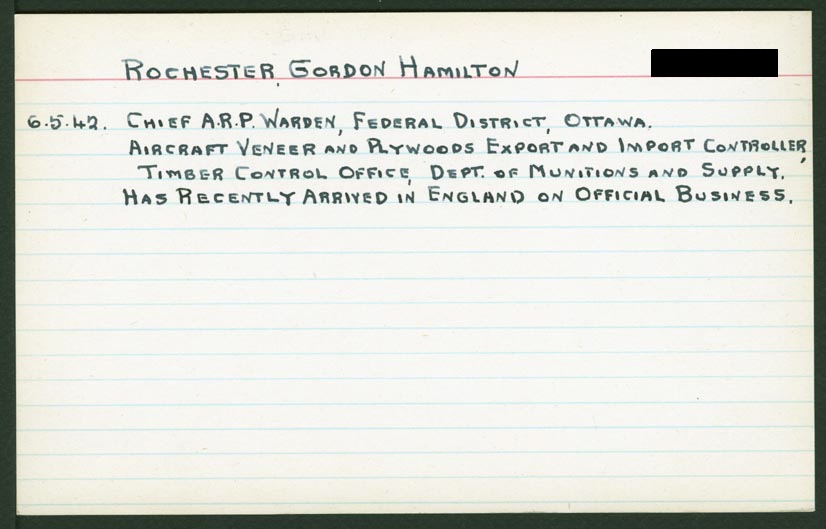 ROCHESTER, GORDON HAMILTON
6.5.42. CHIEF A.R.P. WARDEN, FEDERAL DISTRICT, OTTAWA.
AIRCRAFT VENEER AND PLYWOODS EXPORT AND IMPORT CONTROLLER,
TIMBER CONTROL OFFICE, DEPT. OF MUNITIONS AND SUPPLY.
HAS RECENTLY ARRIVED IN ENGLAND ON OFFICIAL BUSINESS.